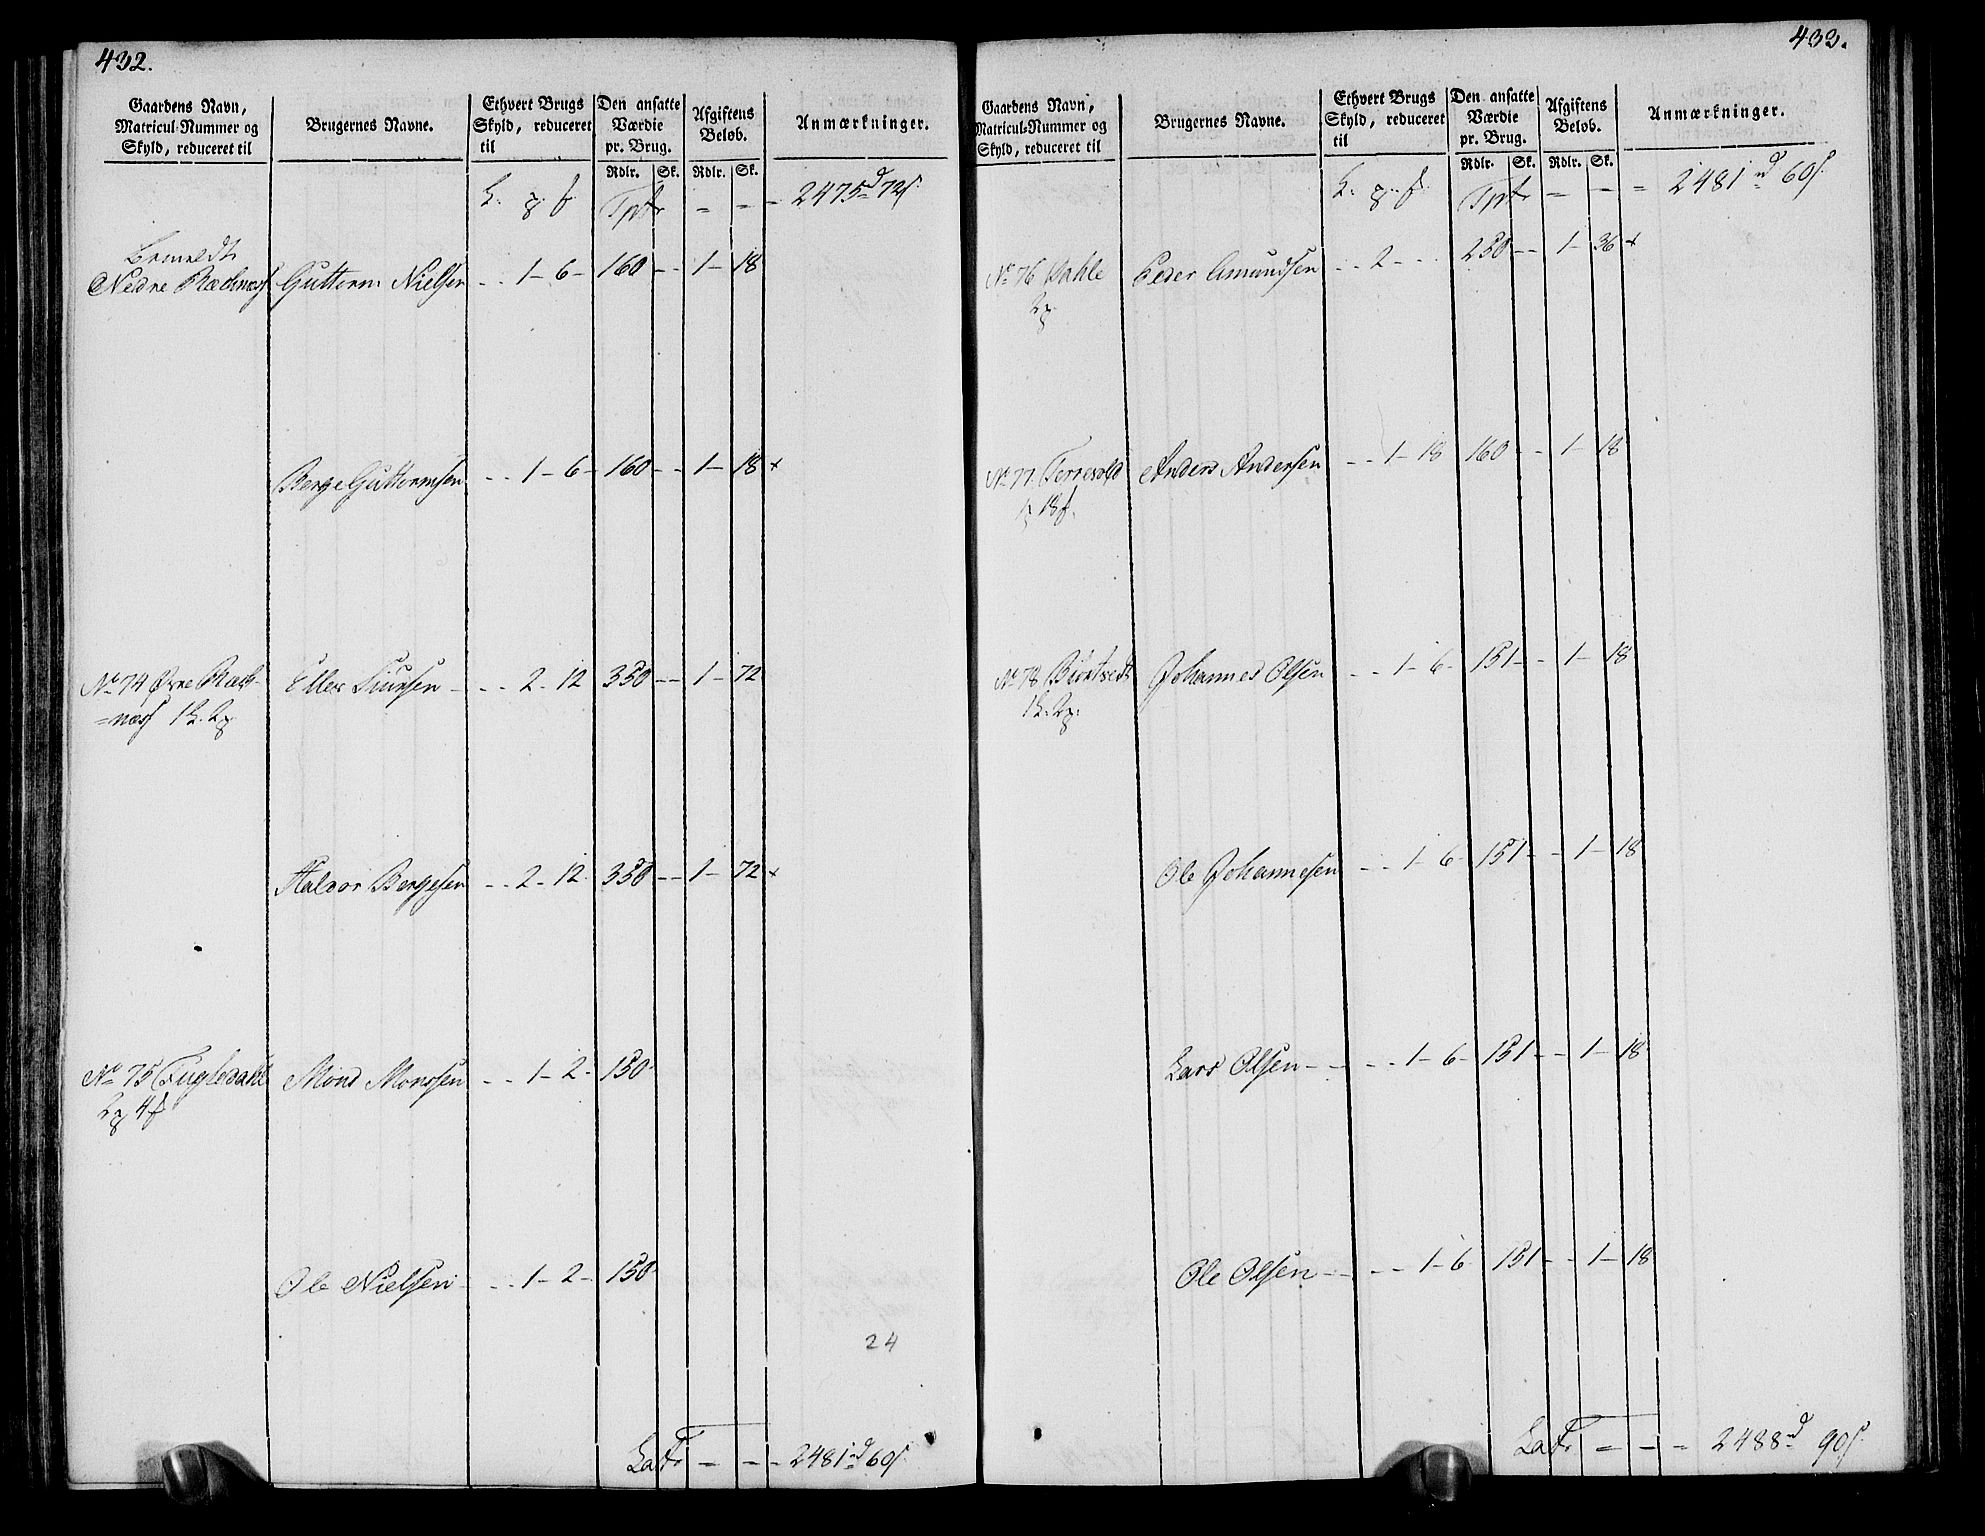 432.
Gaardens Navn, Matricul-Nummer og Skyld, reduceret til
Brugernes Navne.
Ethvert Brugs Skyld, reduceret til
Den ansatte Værdie pr. Brug.
Afgiftens Beløb.
Anmærkninger.
Rdlr. Sk. Rdlr. Sk.
Tptr = = = 2475 72
Nedre Guttorm Nielsen - - 1 - 6 - 160 - - 1 - 18
Berge Guttormsen - - 1 - 6 - 160 - - 1 - 18 x
No 74 Øvre Guttormsen
Eller Siursen - - - 2 - 12 350 - - 1 - 72
Halvor Bergesen - - 2 - 12 350 - - 1 - 72 x
No 75 Fugledahl Mons Monssen - - 1 - 2 - 150
Ole Nielsen - - 1 - 2 - 150
24
Latr = = = 2481 60
433.
Gaardens Navn, Matricul-Nummer og Skyld, reduceret til
Brugernes Navne.
Ethvert Brugs Skyld, reduceret til
Den ansatte Værdie pr. Brug.
Afgiftens Beløb.
Anmærkninger.
Rdlr. Sk. Rdlr. Sk.
Tptr = = = 2481 60
No 76 Dahle Peder Amundsen - - 2 - - 250 - - 1 - 36 x
No 77 Anders Andersen - - 1 - 18 160 - - 1 - 18
No 78 Johannes Olsen - - 1 - 6 - 151 - - 1 - 18
Ole Johannesen - - 1 - 6 - 151 - - 1 - 18
Lars Olsen - - - - 1 - 6 - 151 - - 1 - 18
Ole Olsen - - - - 1 - 6 151 - - 1 - 18
Latr = = = 2488 90